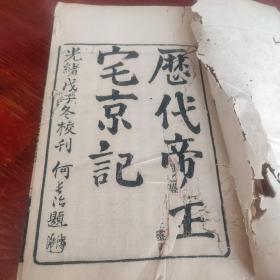 歷代帝王
宅京記
光緒戊子冬校刊
何長治題